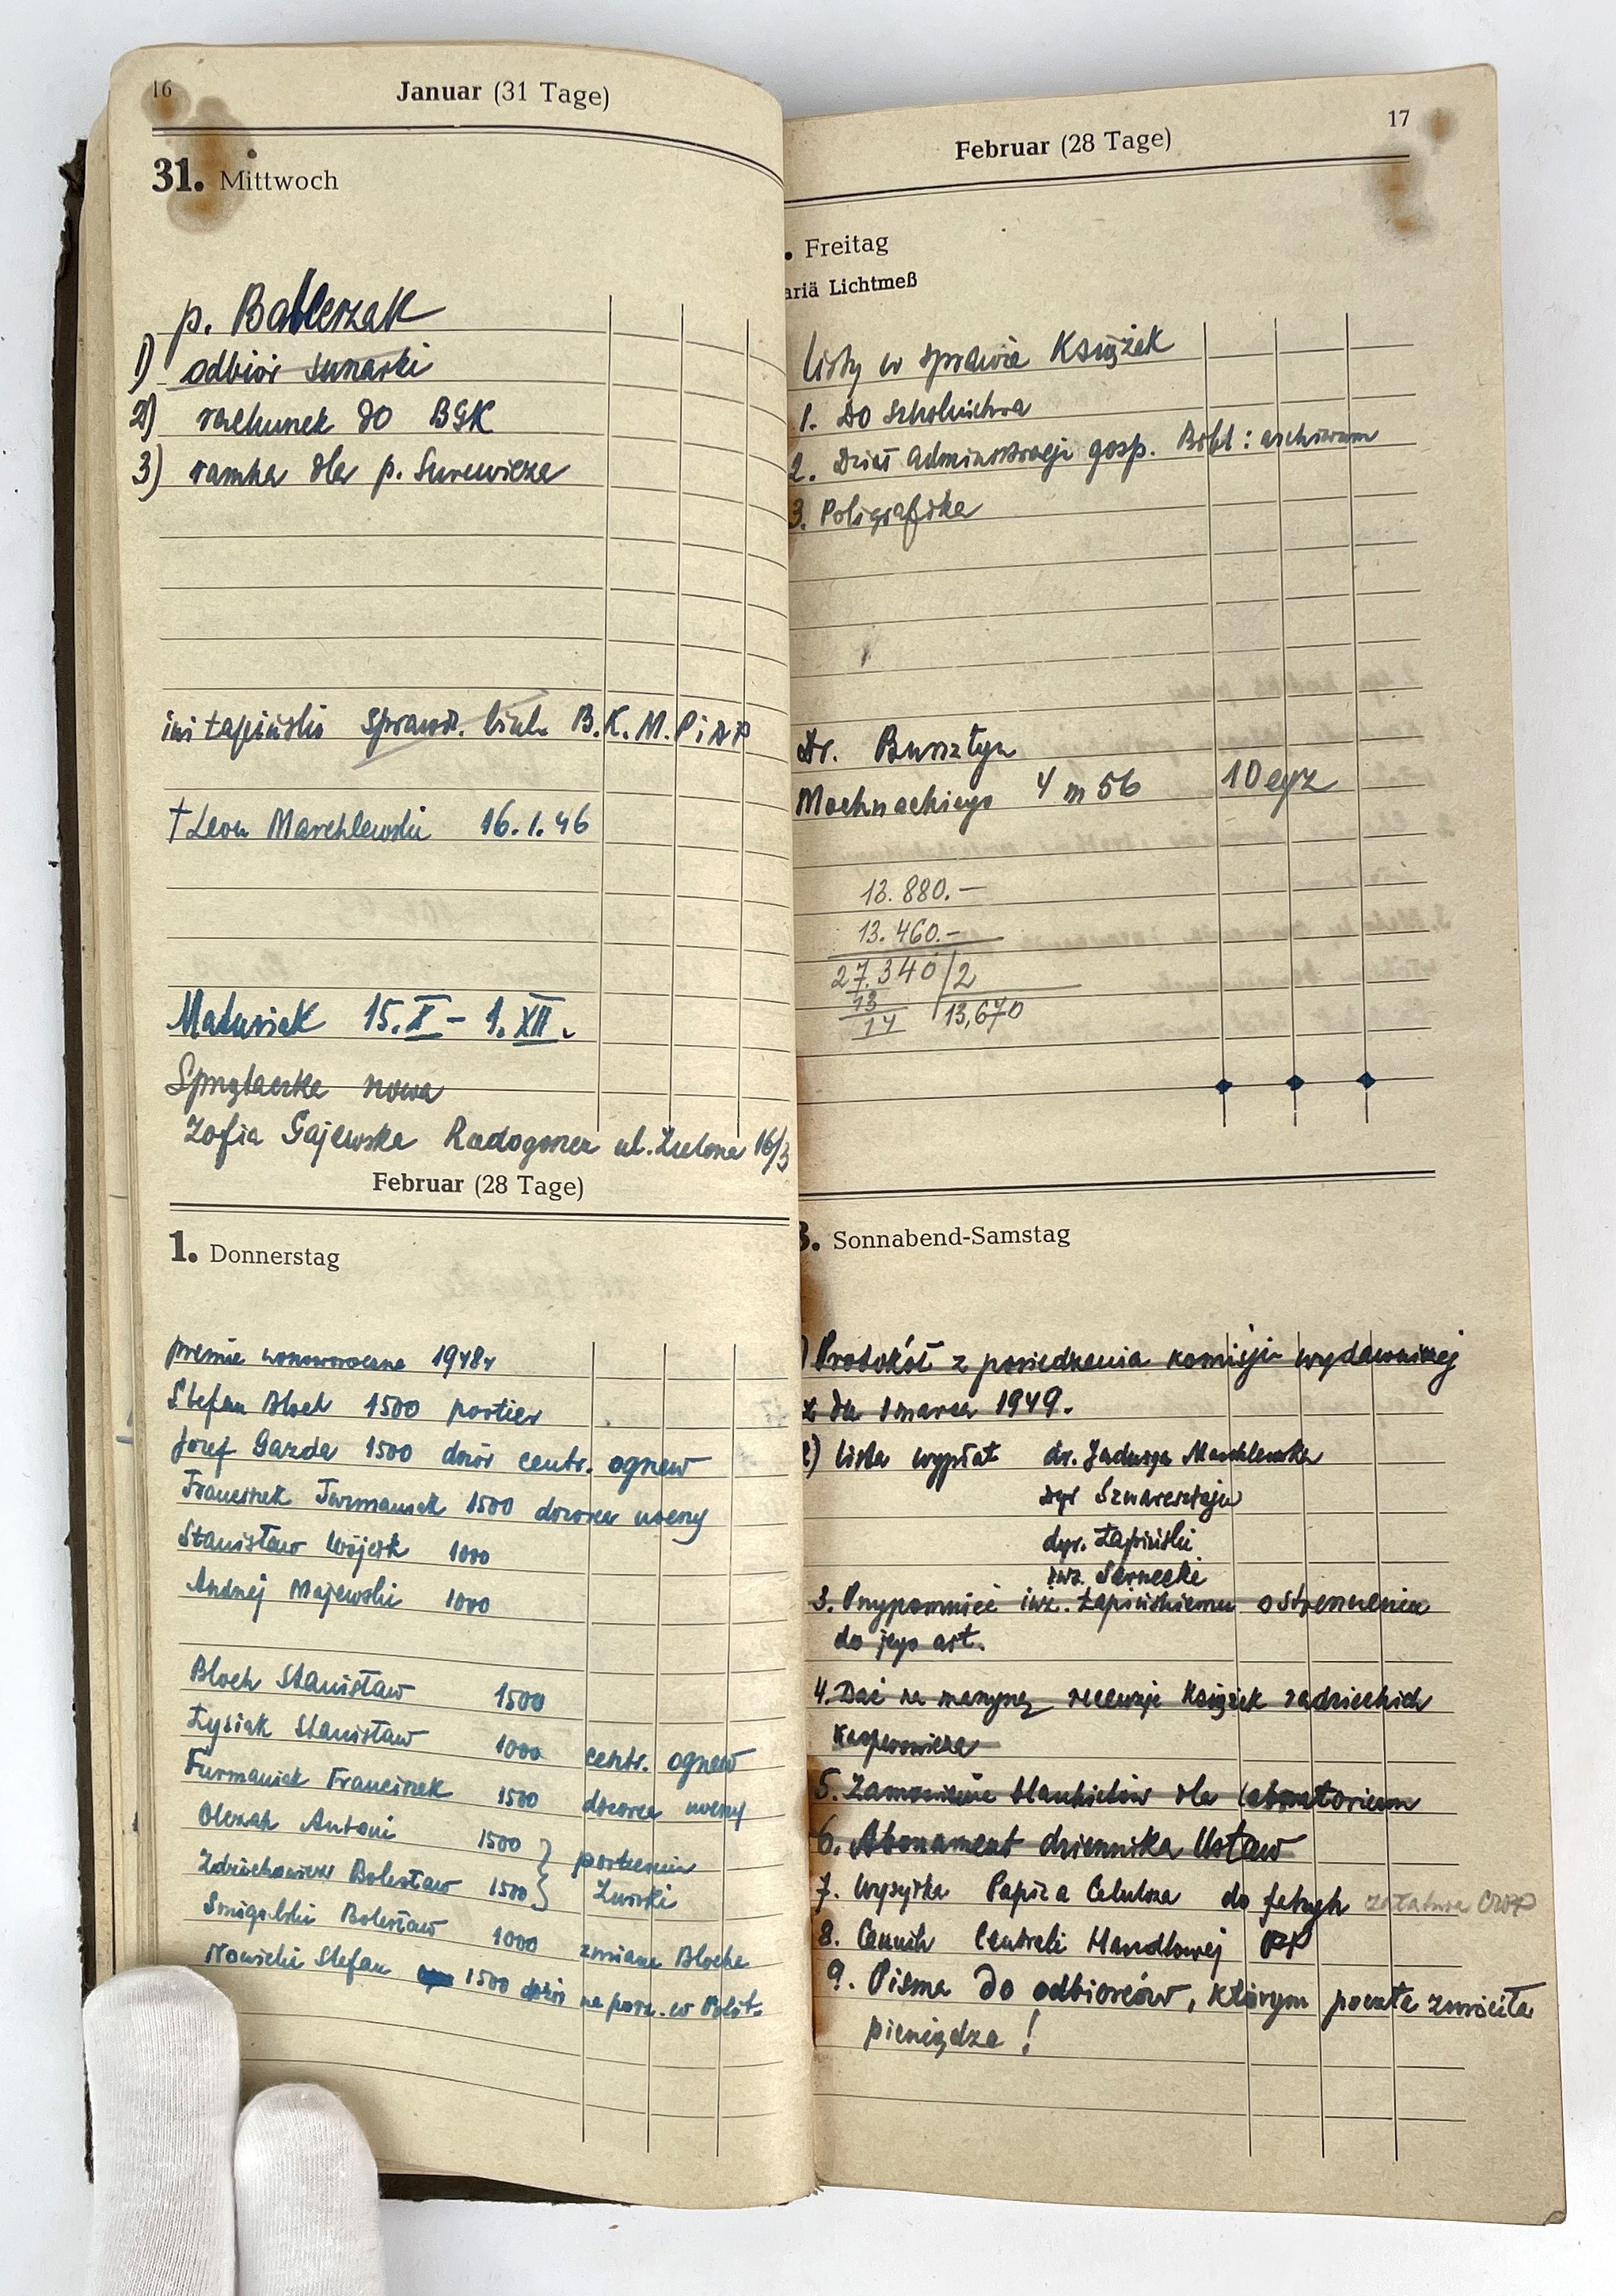 16
Januar (31 Tage)
31. Mittwoch
p.
1) odbiór
2) rachunek do BGK
3) ramka dla p. Surewicza
inż Łapiński Sprawd. B.K.M.PiDP
† Leon Marchlewski 16.1.46
Matusiak 15.X – 1.XII.
Sprzątaczka nowa
Zofia Gajewska Radogoszcz ul. Zielona 16/3
Februar (28 Tage)
1. Donnerstag
premie noworoczne 1948r
Stefan Bloch 1500 portier
Józef Gazda 1500 dozór centr. ogrzew
Franciszek Furmaniak 1500 dozorca nocny
Stanisław Wójcik 1000
Andrzej Majewski 1000
Bloch Stanisław 1500
Łysiak Stanisław 1000 centr. ogrzew
Furmaniak Franciszek 1500 dozorca nocny
Antoni 1500
Bolesław 1500
Bolesław 1000 zmiana Blocha
Nowicki Stefan 1500 dozór na porz. w Polit.
17
Februar (28 Tage)
. Freitag
ariä Lichtmeß
Listy w sprawie Książek
1. Do Szkolnictwa
2. Dział Administracji gosp. Bibl: archiwum
3. Poligrafika
Dr. Bursztyn
Mochnackiego 4 m 56 10 egz
13.880.—
13.460.—
27.340 2
13 13,670
14
3. Sonnabend-Samstag
) Protokół z posiedzenia komisji wydawniczej
z dn 1 marca 1949.
2) lista wypłat dr. Jadwiga Marchlewska
dyr Szwarcsztajn
dyr. Łapiński
inż. Sarnecki
3. Przypomnieć inż. Łapińskiemu o streszczenia
do jego art.
4. Dać na maszynę recenzje Książek radzieckich
Kasperowicza
5. Zamówienie blankietów dla laboratorium
6. Abonament dziennika Ustaw
7. Wysyłka Papira Celuloza do załatwia CWPP
8. Cennik Centrali Handlowej PP
9. Pisma do odbiorców, którym poczta zwróciła
pieniądze!